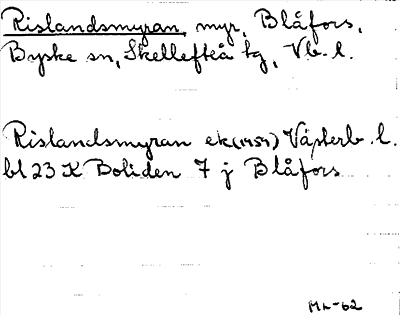 Rislandsmyran, myr, Blåfors,
Byske sn, Skellefteå tg, Vb. l.
Rislandsmyran ek (1959) Västerb. l.
bl 23 K Boliden 7 j Blåfors
ML-62